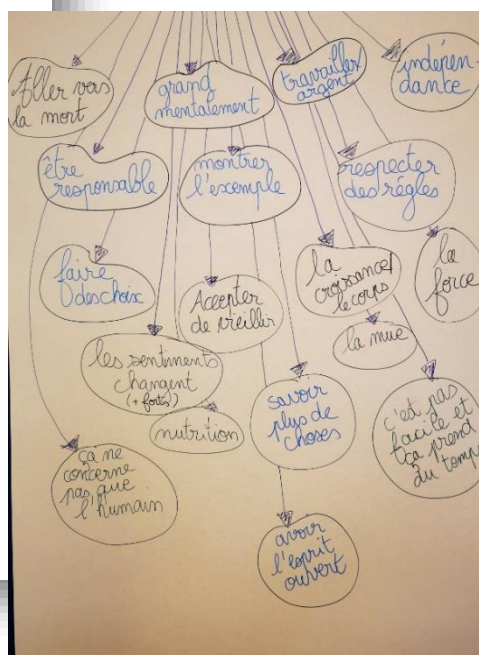 Aller vers
la mort
grand
mentalement
travailler/
argent
indépen-
dance
être
responsable
montrer
l'exemple
respecter
des règles
faire
des choix
Accepter
de vieillir
la
croissance/
le corps
la
force
la mue
les sentiments
changent
(+ forts)
nutrition
savoir
plus de
choses
c'est pas
facile et
ça prend
du temps
ça ne
concerne
pas que
l'humain
avoir
l'esprit
ouvert